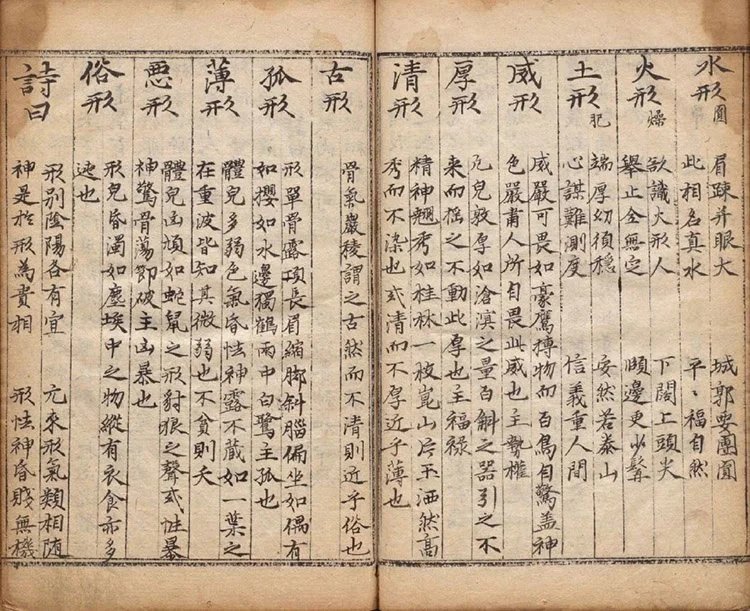 水形 圓
眉踈并眼大 城郭要團圓
此相名真水 平、福自然
火形 燥
欲識火形人 下闊上頭尖
舉止全無定 頤邊更少髯
土形 犯
端厚幼須穩 安然若泰山
心謀難測度 信義重人間
威形
威嚴可畏如豪鷹搏物而百鳥自驚盖神
色嚴肅人所自畏此威也主勢權
厚形
凡皃敦厚如滄溟之量百斛之器引之不
來而搖之不動此厚也主福祿
清形
精神翹秀如桂林一枝崑山片玉洒然高
秀而不染也或清而不厚近乎薄也
古形
骨氣巖稜謂之古然而不清則近乎俗也
孤形
形單骨露項長眉縮脚斜腦偏坐如偶有
如攖如水邊獨鶴雨中白鷺主孤也
薄形
體皃多弱色氣昏怯神露不藏如一葉之
在重波皆知其微弱也不貧則夭
悪形
體皃凶頑如蛇鼠之形豺狼之聲或性暴
神驚骨蕩即破主凶暴也
俗形
形皃昏濁如塵埃中之物縱有衣食亦多
迍也
詩曰
形別陰陽各有宜 元來形氣類相随
神是於形為貴相 形怯神昏賤無機